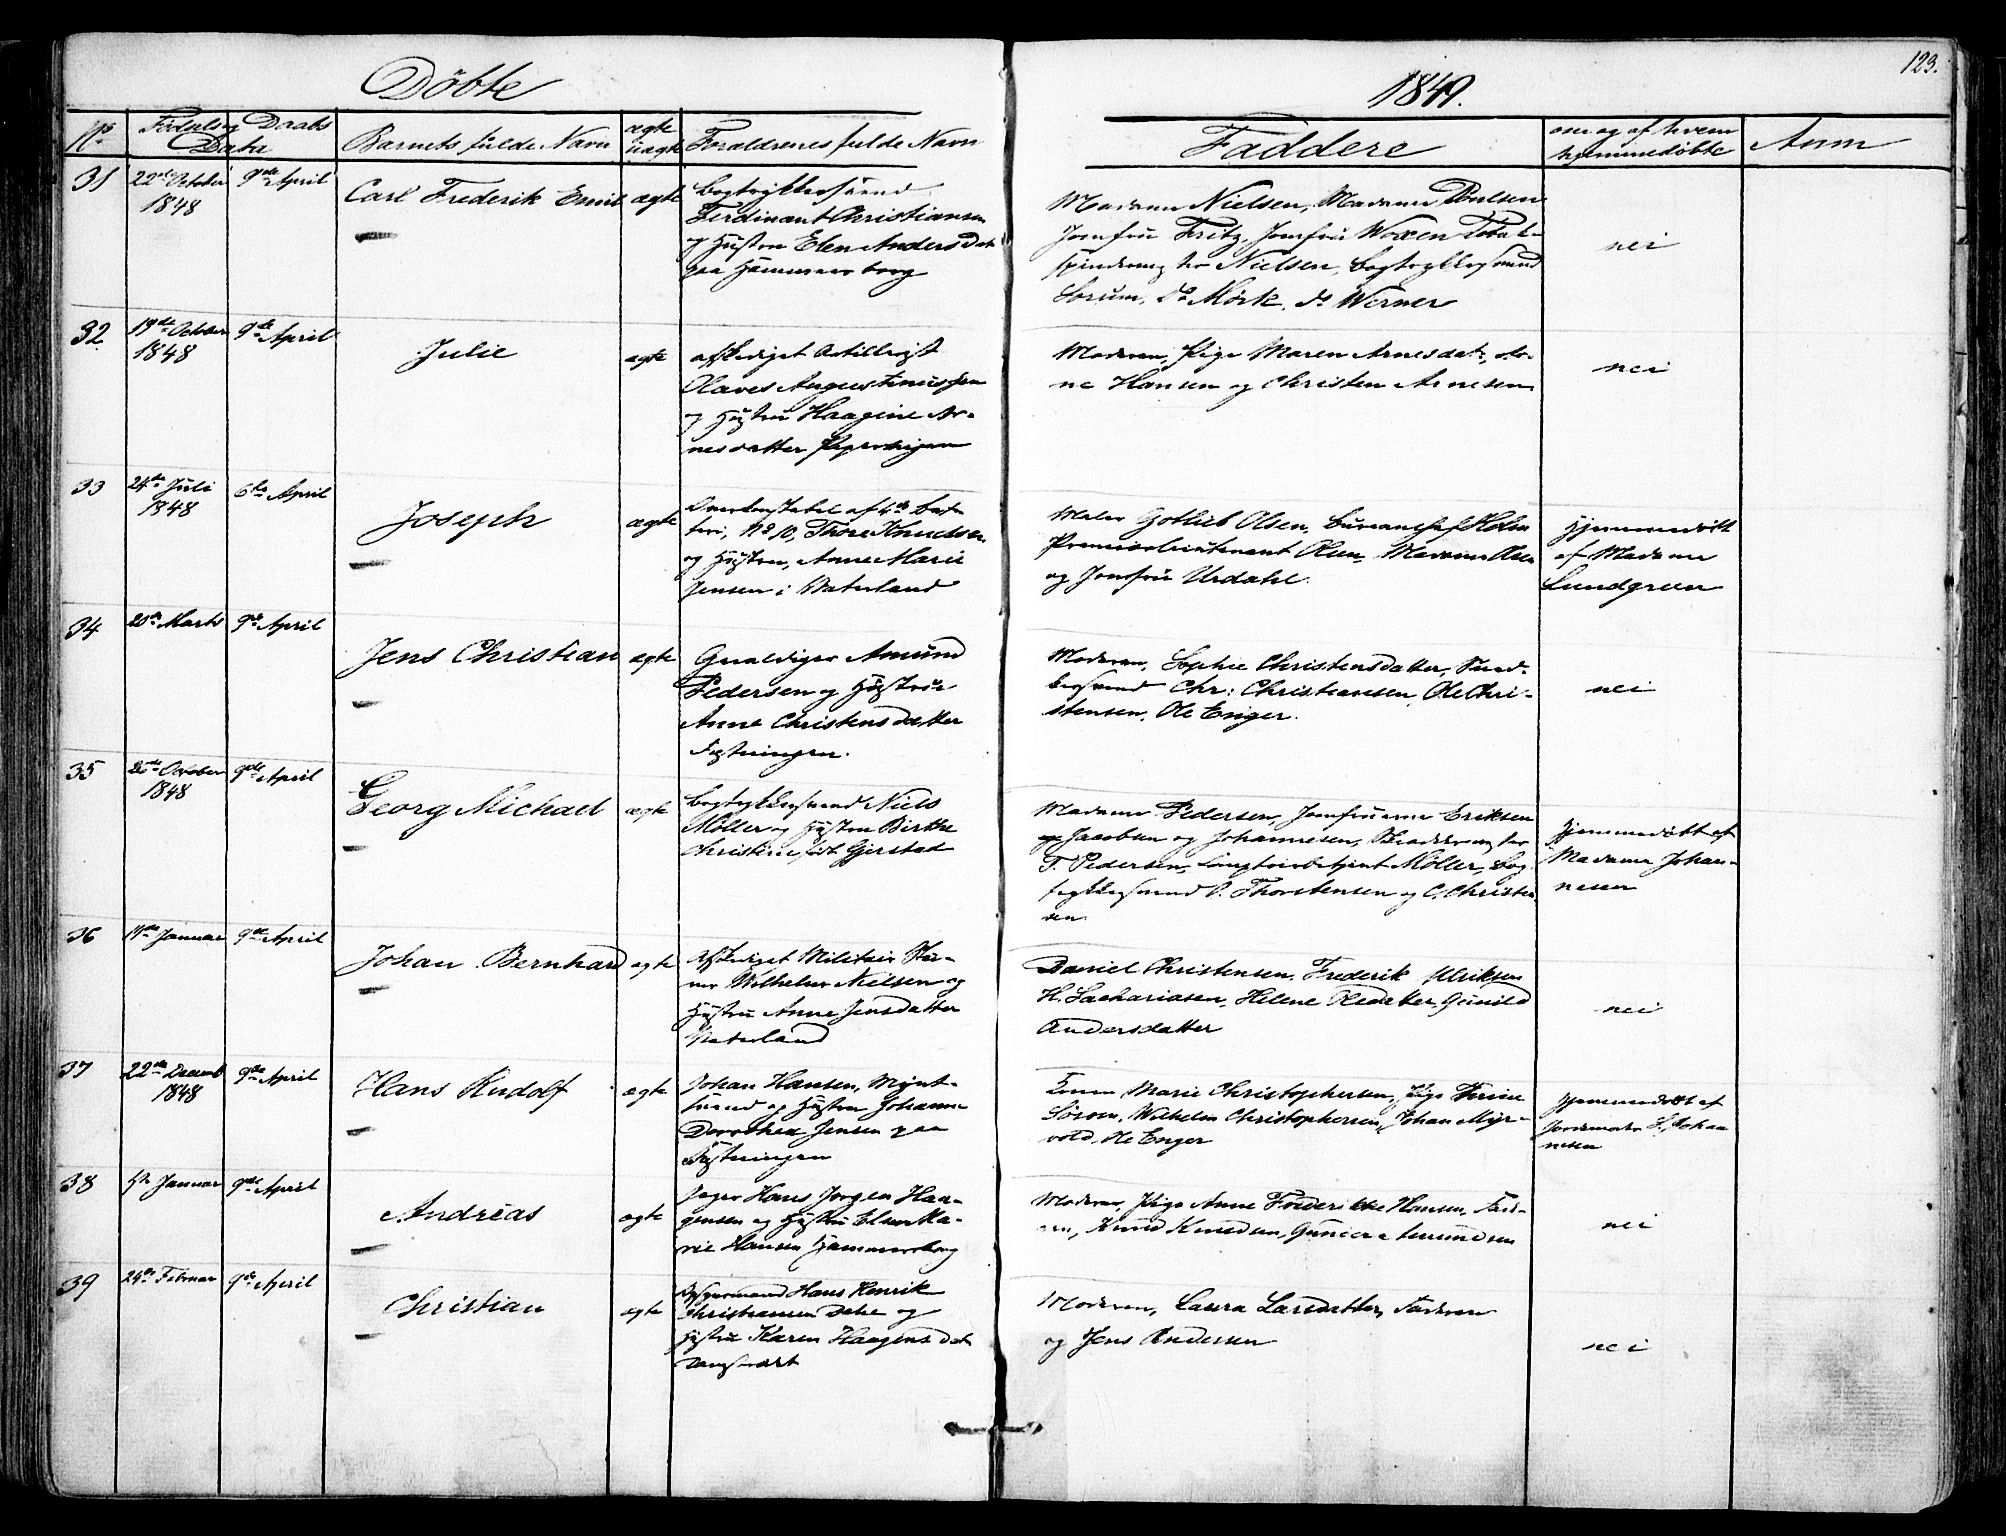 Döbte
1849.
123.
No
Fødsels og Daabs
Data
Barnets fulde Navn
ægte
uægte
Forældrenes fulde Navn
Faddere
om og af hvem
hjemmedøbte
Anm
31
22de October
1848
9de April
Carl Frederik Emil
ægte
Bogtrykkersvend
Ferdinant Christiansen
og Hustru Elen Andersdat
paa Hammersborg
Madame Nielsen, Madame Poulsen
Jomfru Fritz, Jomfru Woxen
Nielsen, Bogtrykkersvend
Sorum, do Mörk, do Werner
nei
32
19de October
1848
9de April
Julie
ægte
afskediget Artillerist
Olaves Augustinussen
og Hustru Haagine Ar-
nesdatter Pipervigen
Moderen, Pige Maren Arnesdat, Ar-
ne Hansen og Christen Arnesen
nei
33
24de Juli
1848
6te April
Joseph
ægte
Overkonstabel af 4de Bat-
teri, No 10, Thore Knudsen
og Hustru, Anne Marie
Jensen i Vaterland
Maler Gotlieb Olsen, Bureauchef Holm
Premierlieutenant Olsen, Madame Olsen
og Jomfru Urdahl.
hjemmedøbt
af Madame
Lundgreen
34
20de Marts
9de April
Jens Christian
ægte
Gevaldiger Amund
Pedersen og Hustru
Anne Christensdatter
Fæstningen.
Moderen, Sophie Christensdatter,
Chr: Christiansen, Ole Chri-
stensen, Ole Enger.
nei
35
October
1848
9de April
Georg Michael
ægte
Bogtrykkersvend Niels
Möller og Hustru Birthe
Christine født Gjerstad
Madame Pedersen, Jomfruerne Eriksen
Jacobsen og Johannesen,
T. Pedersen, Möller, Bog-
trykkersvend P. Thorstensen og C. Christen-
sen.
hjemmedøbt af
Madame Johan-
nesen
36
Januar
9de April
Johan Bernhard
ægte
Afskediget Militair
Wilhelm Nielsen og
Hustru Anne Jensdatter
Vaterland
Daniel Christensen, Frederik Ulriksen
H. Sachariasen, Helene Oledatter, Gunild
Andersdatter
nei
37
22de Decemb
1848
9de April
Hans Rudolf
ægte
Johan Hansen, Mynt-
svend og Hustru Johanne
Dorothea Jensen paa
Fæstningen
Marie Christophersen, Pige
Wilhelm Christophersen, Johan Myr-
vold, Ole Enger
hjemmedøbt af
Jordemoder S. Johan-
nesen
38
Januar
9de April
Andreas
ægte
Jæger Hans Jørgen Haa-
gensen og Hustru Elen Ma-
rie Hansen Hammersborg
Moderen, Pige Anne Frederikke Hansen, Fad-
eren, Knud Knudsen, Amundsen
nei
39
24de Februar
9de April
Christian
ægte
Hans Henrik
Christiansen Dehe og
Hustru Karen Haagensdat
Moderen, Laura Larsdatter, Faderen
og Jens Andersen
nei